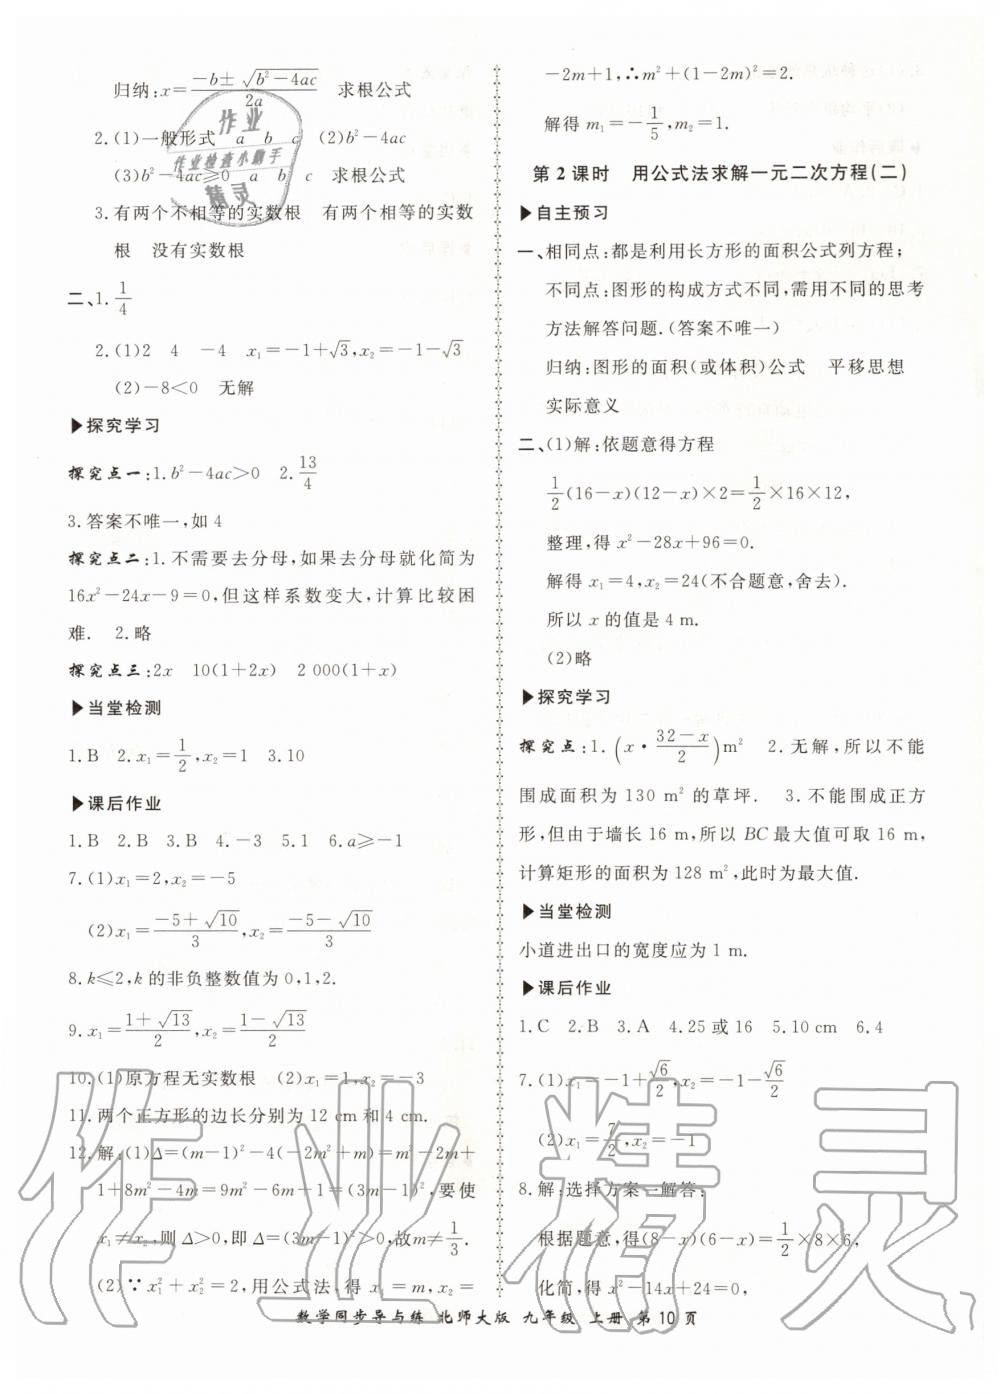 归纳:x=(-b±√(b²-4ac))/2a　求根公式
2.(1)一般形式　a　b　c　(2)b²-4ac
(3)b²-4ac≥0　a　b　c　求根公式
3.有两个不相等的实数根　有两个相等的实数
根　没有实数根
二、1.1/4
2.(1)2　4　-4　x₁=-1+√3,x₂=-1-√3
(2)-8<0　无解
▶探究学习
探究点一:1.b²-4ac>0　2.13/4
3.答案不唯一,如 4
探究点二:1.不需要去分母,如果去分母就化简为
16x²-24x-9=0,但这样系数变大,计算比较困
难.　2.略
探究点三:2x　10(1+2x)　2 000(1+x)
▶当堂检测
1.B　2.x₁=1/2,x₂=1　3.10
▶课后作业
1.B　2.B　3.B　4.-3　5.1　6.a≥-1
7.(1)x₁=2,x₂=-5
(2)x₁=(-5+√10)/3,x₂=(-5-√10)/3
8.k≤2,k 的非负整数值为 0,1,2.
9.x₁=(1+√13)/2,x₂=(1-√13)/2
10.(1)原方程无实数根　(2)x₁=1,x₂=-3
11.两个正方形的边长分别为 12 cm 和 4 cm.
12.解:(1)Δ=(m-1)²-4(-2m²+m)=m²-2m+
1+8m²-4m=9m²-6m+1=(3m-1)²,要使
x₁≠x₂,则 Δ>0,即 Δ=(3m-1)²>0,故m≠1/3.
(2)∵x₁²+x₂²=2,用公式法,得 x₁=m,x₂=
-2m+1,∴m²+(1-2m)²=2.
解得 m₁=-1/5,m₂=1.
第 2 课时　用公式法求解一元二次方程(二)
▶自主预习
一、相同点:都是利用长方形的面积公式列方程;
不同点:图形的构成方式不同,需用不同的思考
方法解答问题.(答案不唯一)
归纳:图形的面积(或体积)公式　平移思想
实际意义
二、(1)解:依题意得方程
1/2(16-x)(12-x)×2=1/2×16×12,
整理,得 x²-28x+96=0.
解得 x₁=4,x₂=24(不合题意,舍去).
所以 x 的值是 4 m.
(2)略
▶探究学习
探究点:1.(x·(32-x)/2)m²　2.无解,所以不能
围成面积为 130 m² 的草坪.　3.不能围成正方
形,但由于墙长 16 m,所以 BC 最大值可取 16 m,
计算矩形的面积为 128 m²,此时为最大值.
▶当堂检测
小道进出口的宽度应为 1 m.
▶课后作业
1.C　2.B　3.A　4.25 或 16　5.10 cm　6.4
7.(1)x₁=-1+√6/2,x₂=-1-√6/2
(2)x₁=7/2,x₂=-1
8.解:选择方案一解答:
根据题意,得(8-x)(6-x)=1/2×8×6,
化简,得 x²-14x+24=0,
数学同步导与练　北师大版　九年级　上册　第 10 页
作业
作业检查小助手
精灵
作业精灵